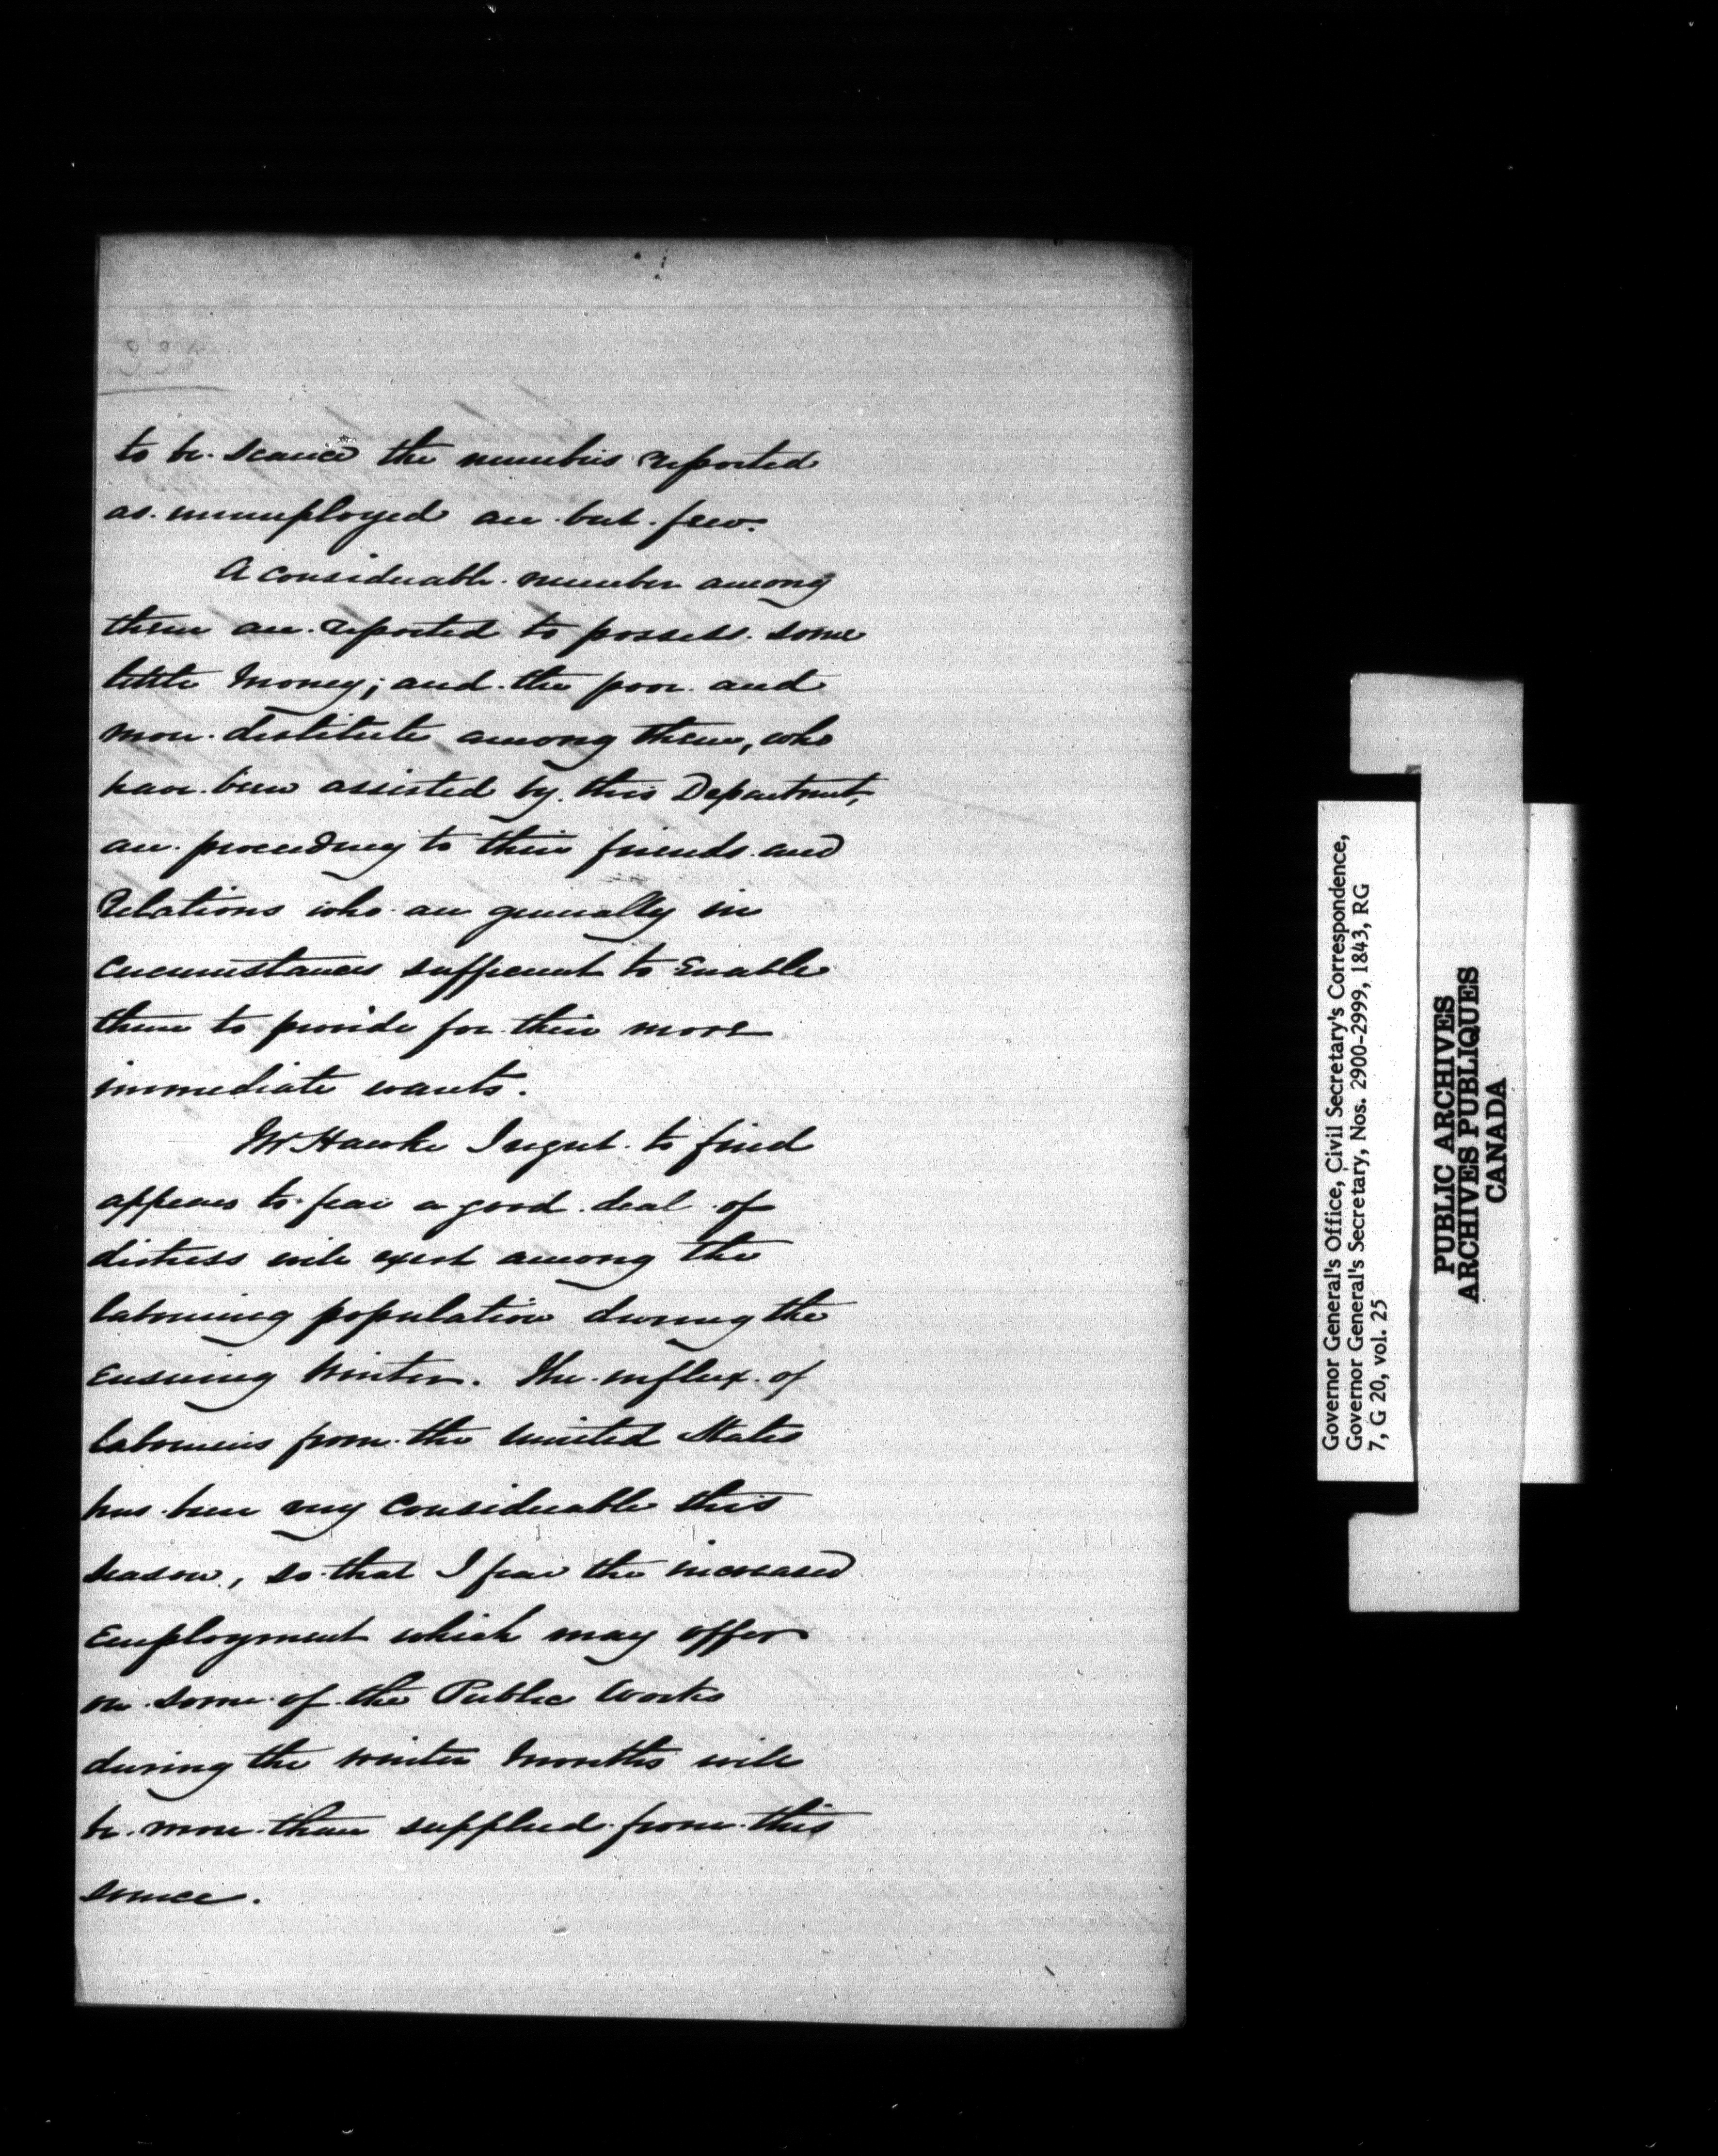 to be scarce the numbers reported
as unemployed are but few.
A considerable number among
them are reported to possess some
little Money; and the poor and
more destitute among them, who
have been assisted by this Department,
are proceeding to their friends and
Relations who are generally in
circumstances sufficient to Enable
them to provide for their more
immediate wants.
Mr Hawke I regret to find
appears to fear a good deal of
distress will exist among the
labouring population during the
Ensuing Winter. The influx of
labourers from the United States
has been very Considerable this
season, so that I fear the increased
Employment which may offer
on some of the Public Works
during the winter Months will
be more than supplied from this
source.
Governor General's Office, Civil Secretary's Correspondence,
Governor General's Secretary, Nos. 2900-2999, 1843, RG
7, G 20, vol. 25
PUBLIC ARCHIVES
ARCHIVES PUBLIQUES
CANADA